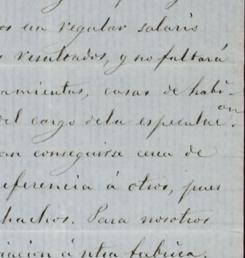 os un regular salario
s resultados, y no faltará
namientos, casas de habi-
del cargo de la especulac-
an conseguirse cerca de
referencia á otros, pues
hachos. Para nosotros
iacion á ntra fabrica.